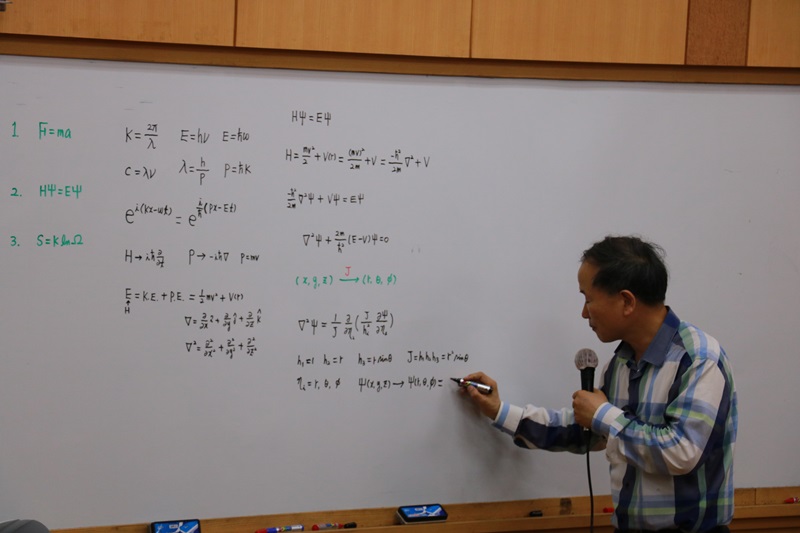 1. F=ma
2. HΨ=EΨ
3. S=K ln Ω
K=2π/λ E=hν E=ħω
C=λν λ=h/P P=ħK
e^{i(Kx-ωt)} = e^{i/ħ(Px-Et)}
H→iħ∂/∂t P→-iħ∇ P=mv
E=K.E.+P.E.=1/2mv²+V(r)
↑
H
∇=∂/∂x î+∂/∂y ĵ+∂/∂z k̂
∇²=∂²/∂x²+∂²/∂y²+∂²/∂z²
HΨ=EΨ
H=mv²/2+V(r)=(mv)²/2m+V=-ħ²/2m∇²+V
-ħ²/2m∇²Ψ+VΨ=EΨ
∇²Ψ+2m/ħ²(E-V)Ψ=0
(x,y,z) J→ (r,θ,φ)
∇²Ψ=1/J ∂/∂η_i(J/h_i² ∂Ψ/∂η_i)
h₁=1 h₂=r h₃=r sinθ J=h₁h₂h₃=r²sinθ
η_i=r,θ,φ Ψ(x,y,z)→Ψ(r,θ,φ)=